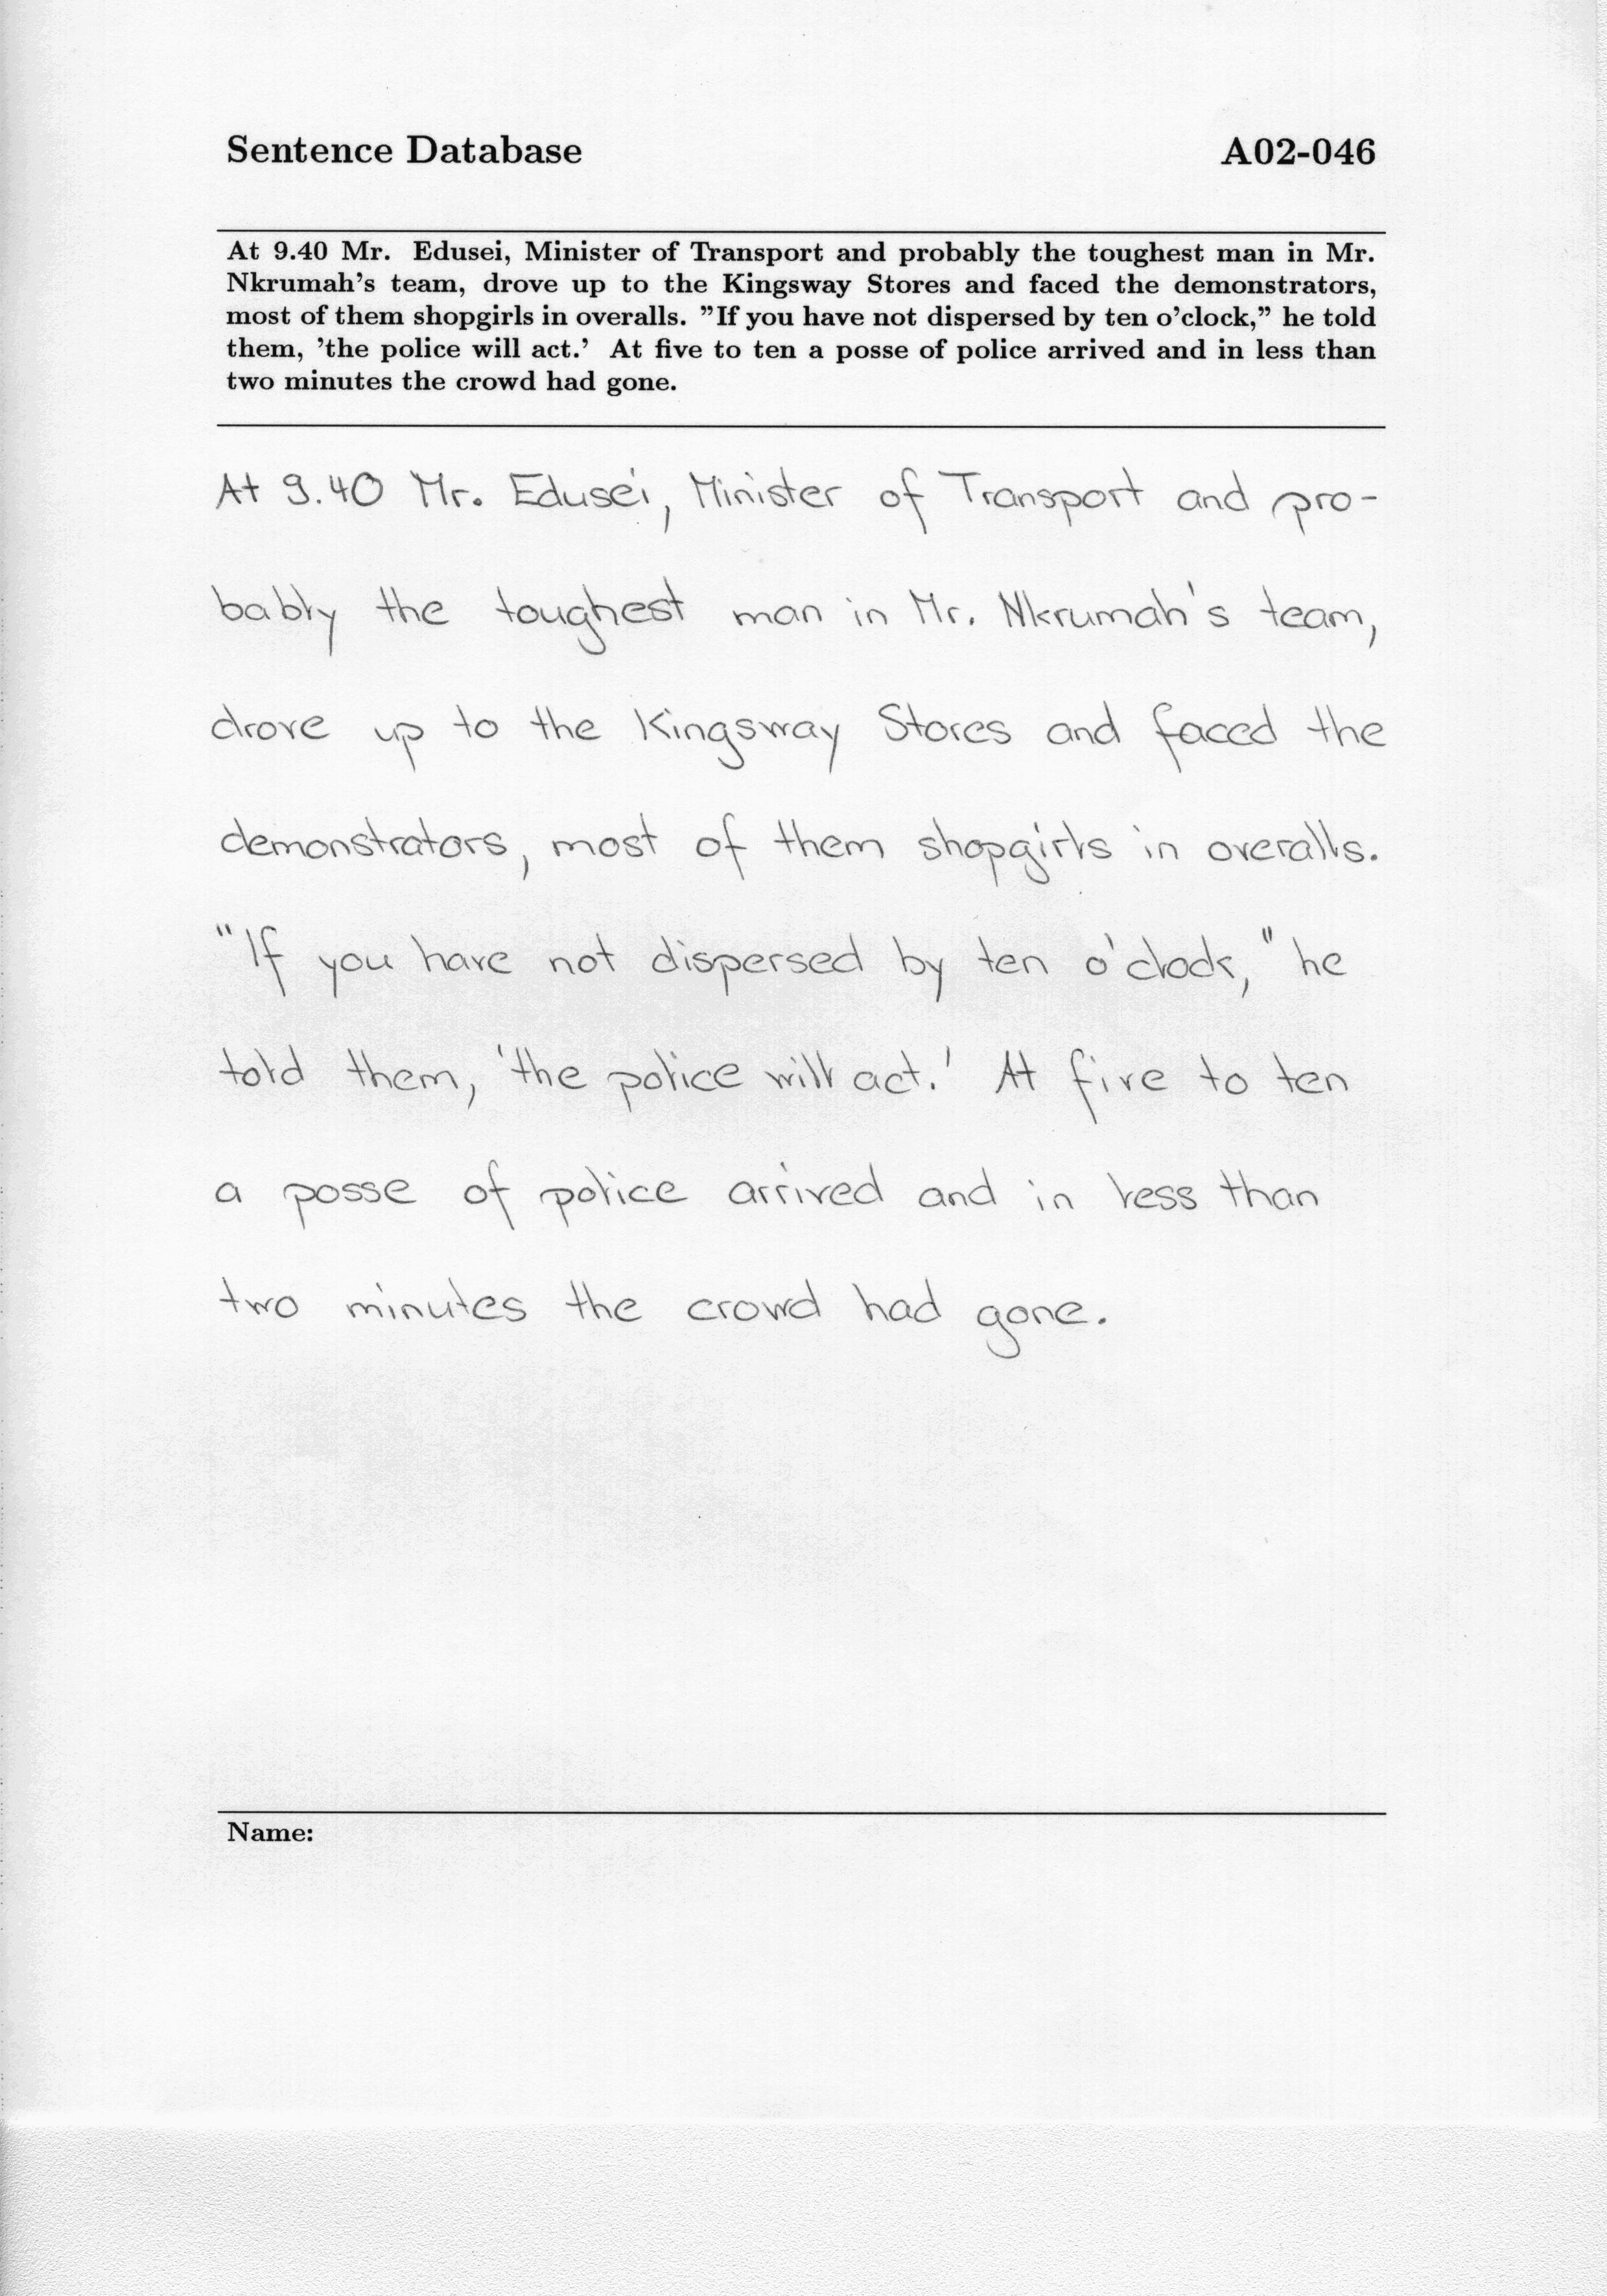 Sentence Database A02-046
At 9.40 Mr. Edusei, Minister of Transport and probably the toughest man in Mr.
Nkrumah's team, drove up to the Kingsway Stores and faced the demonstrators,
most of them shopgirls in overalls. "If you have not dispersed by ten o'clock," he told
them, 'the police will act.' At five to ten a posse of police arrived and in less than
two minutes the crowd had gone.
At 9.40 Mr. Edusei, Minister of Transport and pro-
bably the toughest man in Mr. Nkrumah's team,
drove up to the Kingsway Stores and faced the
demonstrators, most of them shopgirls in overalls.
"If you have not dispersed by ten o'clock," he
told them, 'the police will act.' At five to ten
a posse of police arrived and in less than
two minutes the crowd had gone.
Name: